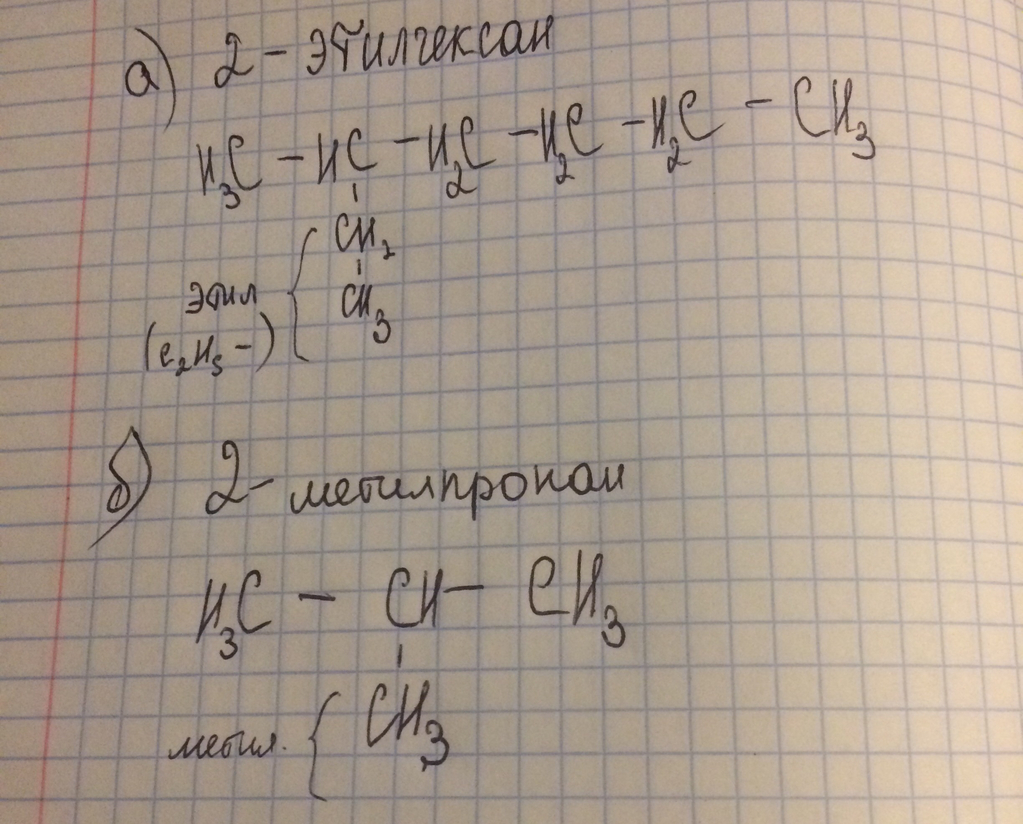 а) 2 - этилгексан
H₃C - HC - H₂C - H₂C - H₂C - CH₃
CH₂
этил
CH₃
(C₂H₅ -)
б) 2 - метилпропан
H₃C - CH - CH₃
CH₃
метил.